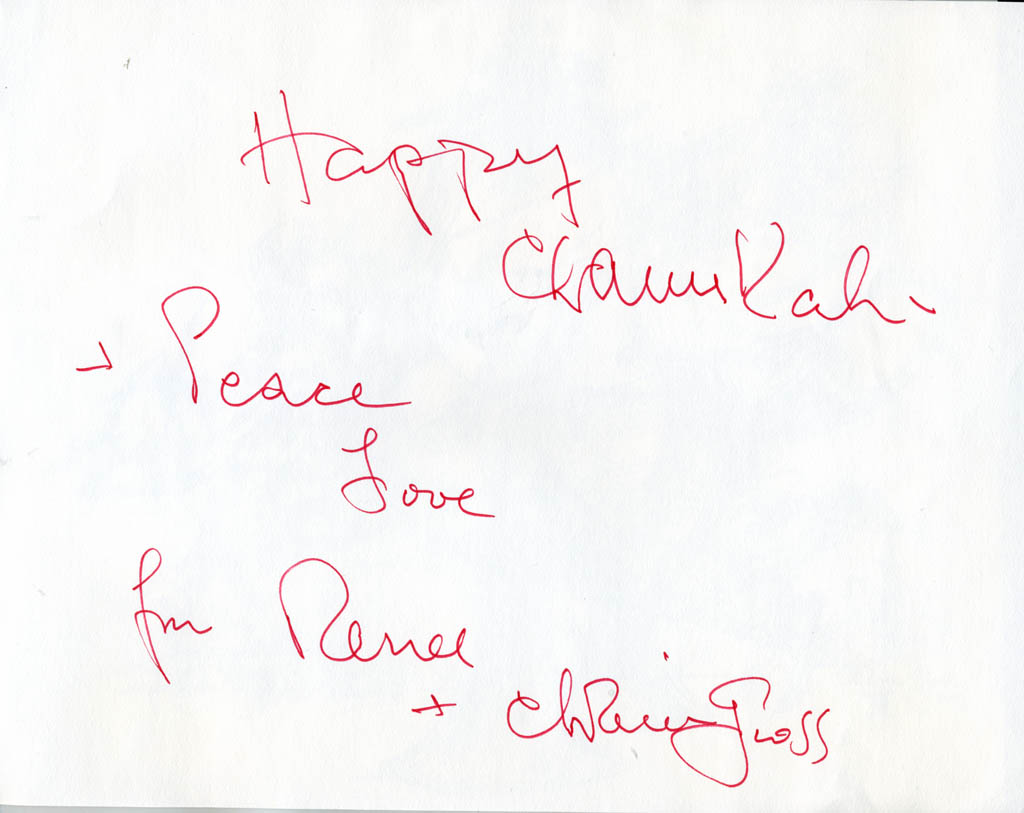 Happy
Chanukah
+ Peace
Love
from Renee
+ Chaim Gross